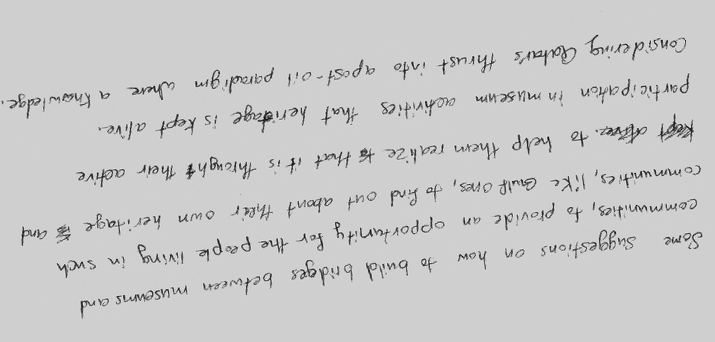 Some suggestions on how to build bridges between museums and
communities, to provide an opportunity for the people living in such
communities, like Gulf ones, to find out about their own heritage and
to help them realize that it is throught their active
participation in museum activities that heritage is kept alive.
Considering Qatar's thrust into apost-oil paradigm where a knowledge.